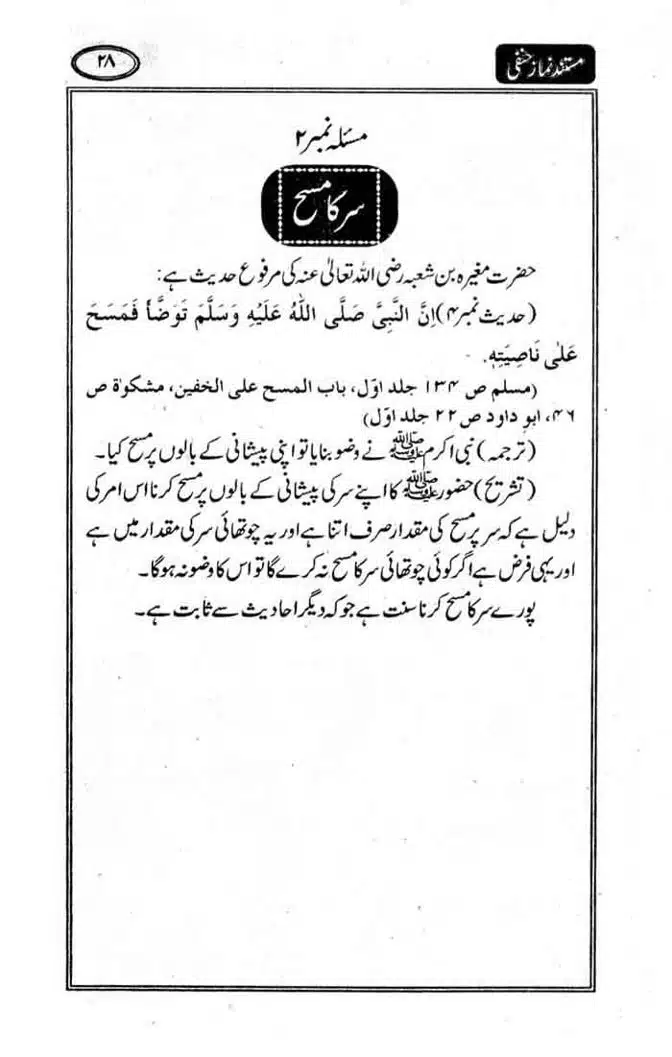 مستند نماز حنفی
۲۸
مسئلہ نمبر ۲
سر کا مسح
حضرت مغیرہ بن شعبہ رضی اللہ تعالیٰ عنہ کی مرفوع حدیث ہے:
(حدیث نمبر ۴) اِنَّ النَّبِیَّ صَلَّی اللّٰہُ عَلَیْہِ وَسَلَّمَ تَوَضَّأَ فَمَسَحَ
عَلٰی نَاصِیَتِہٖ.
(مسلم ص ۱۳۴ جلد اوّل، باب المسح علی الخفین، مشکوٰۃ ص
۴۶، ابو داود ص ۲۲ جلد اوّل)
(ترجمہ) نبی اکرم ﷺ نے وضو بنایا تو اپنی پیشانی کے بالوں پر مسح کیا۔
(تشریح) حضور ﷺ کا اپنے سر کی پیشانی کے بالوں پر مسح کرنا اس امر کی
دلیل ہے کہ سر پر مسح کی مقدار صرف اتنا ہے اور یہ چوتھائی سر کی مقدار میں ہے
اور یہی فرض ہے اگر کوئی چوتھائی سر کا مسح نہ کرے گا تو اس کا وضو نہ ہوگا۔
پورے سر کا مسح کرنا سنت ہے جو کہ دیگر احادیث سے ثابت ہے۔